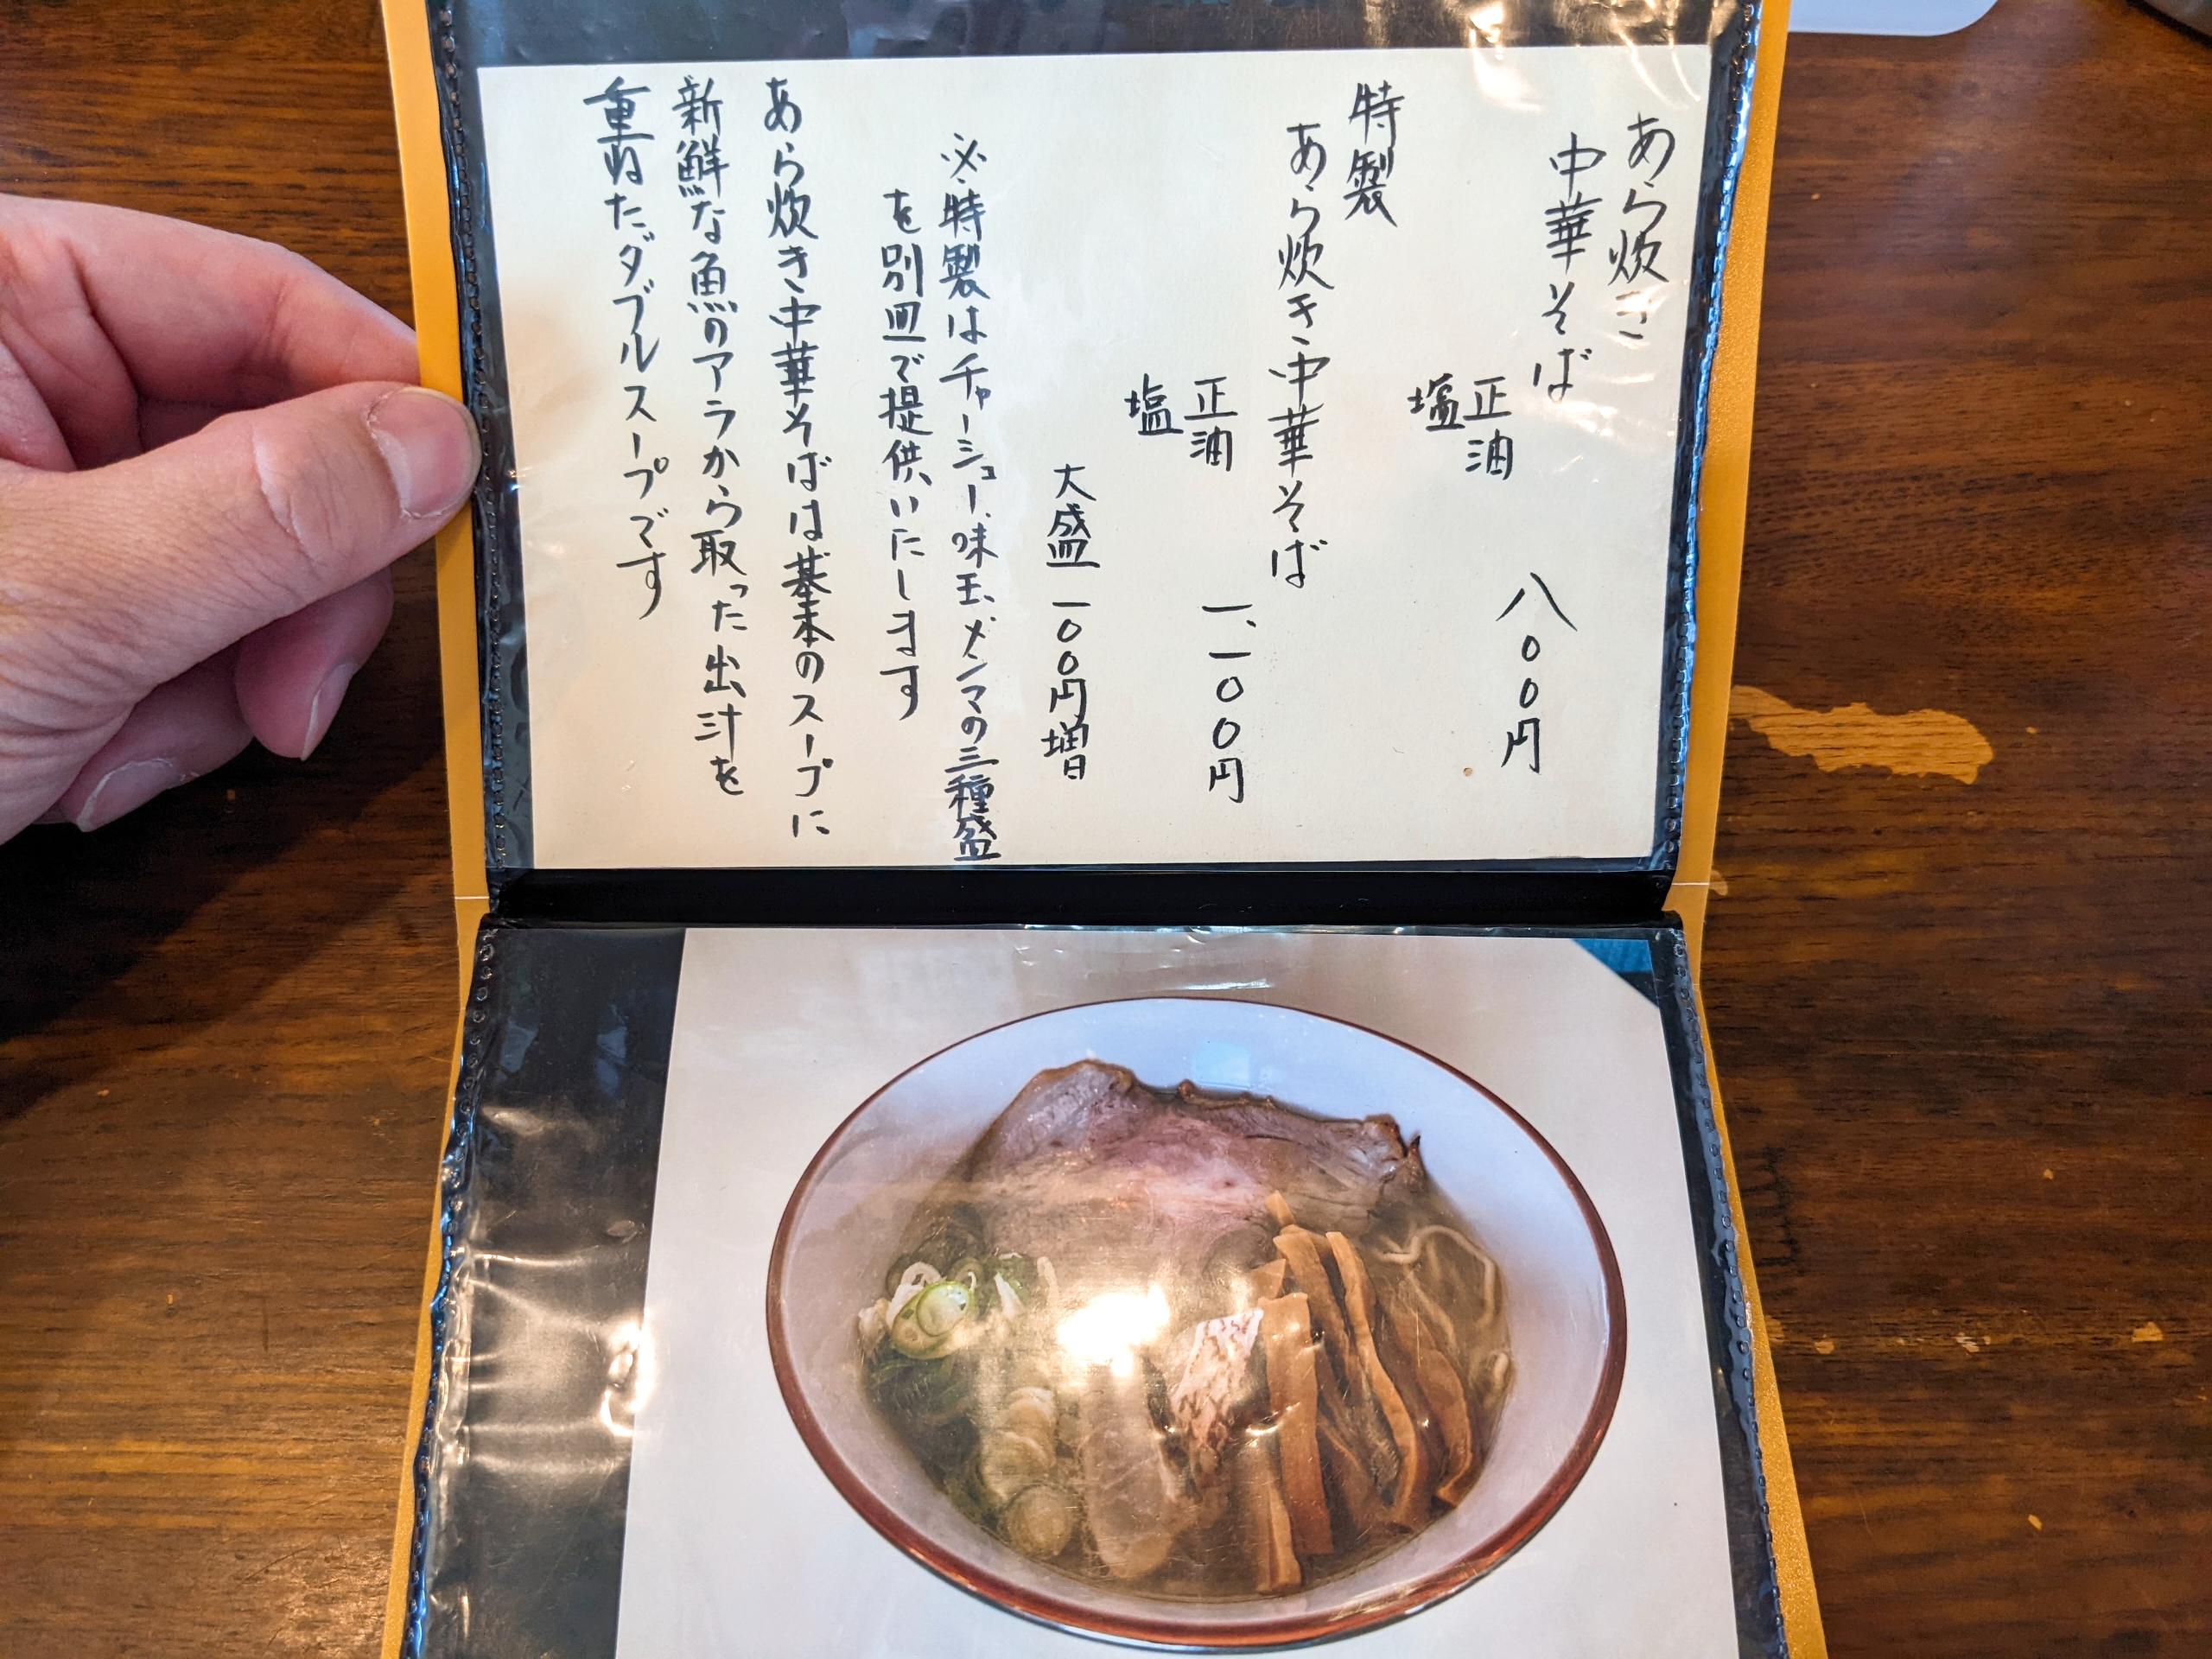 あら炊き
中華そば
正油
塩
八〇〇円
特製
あら炊き中華そば
正油
塩
一、一〇〇円
大盛一〇〇円増
※特製はチャーシュー、味玉、メンマの三種盛
を別皿で提供いたします
あら炊き中華そばは基本のスープに
新鮮な魚のアラから取った出汁を
重ねたダブルスープです